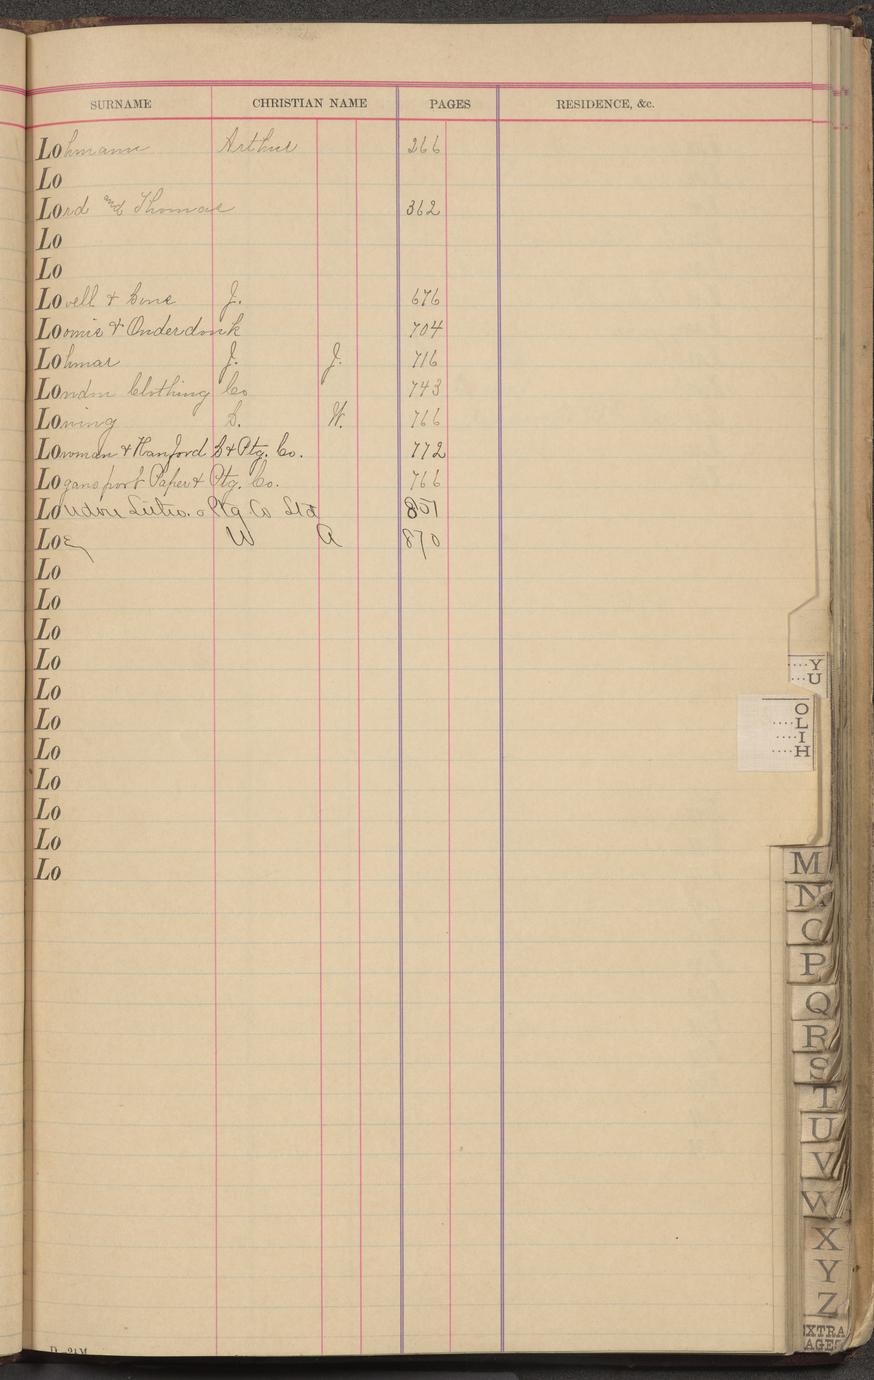 SURNAME CHRISTIAN NAME PAGES RESIDENCE, &c.
Lohmann Arthur 266
Lo
Lord and Thomas 362
Lo
Lo
Lovell & J. 676
Loomis & Onderdonk 704
Lohmar J. J. 716
London Clothing Co 743
Loning W. 766
Lowman & Hanford S & Ptg. Co. 772
Logansport Paper & Ptg. Co. 766
London Litho. & Ptg Co Ltd 851
Loe W A 870
Lo
Lo
Lo
Lo
Lo
Lo
Lo
Lo
Lo
Lo
Lo
Y
U
O
L
I
H
M
N
O
P
Q
R
S
T
U
V
W
X
Y
Z
EXTRA
PAGES